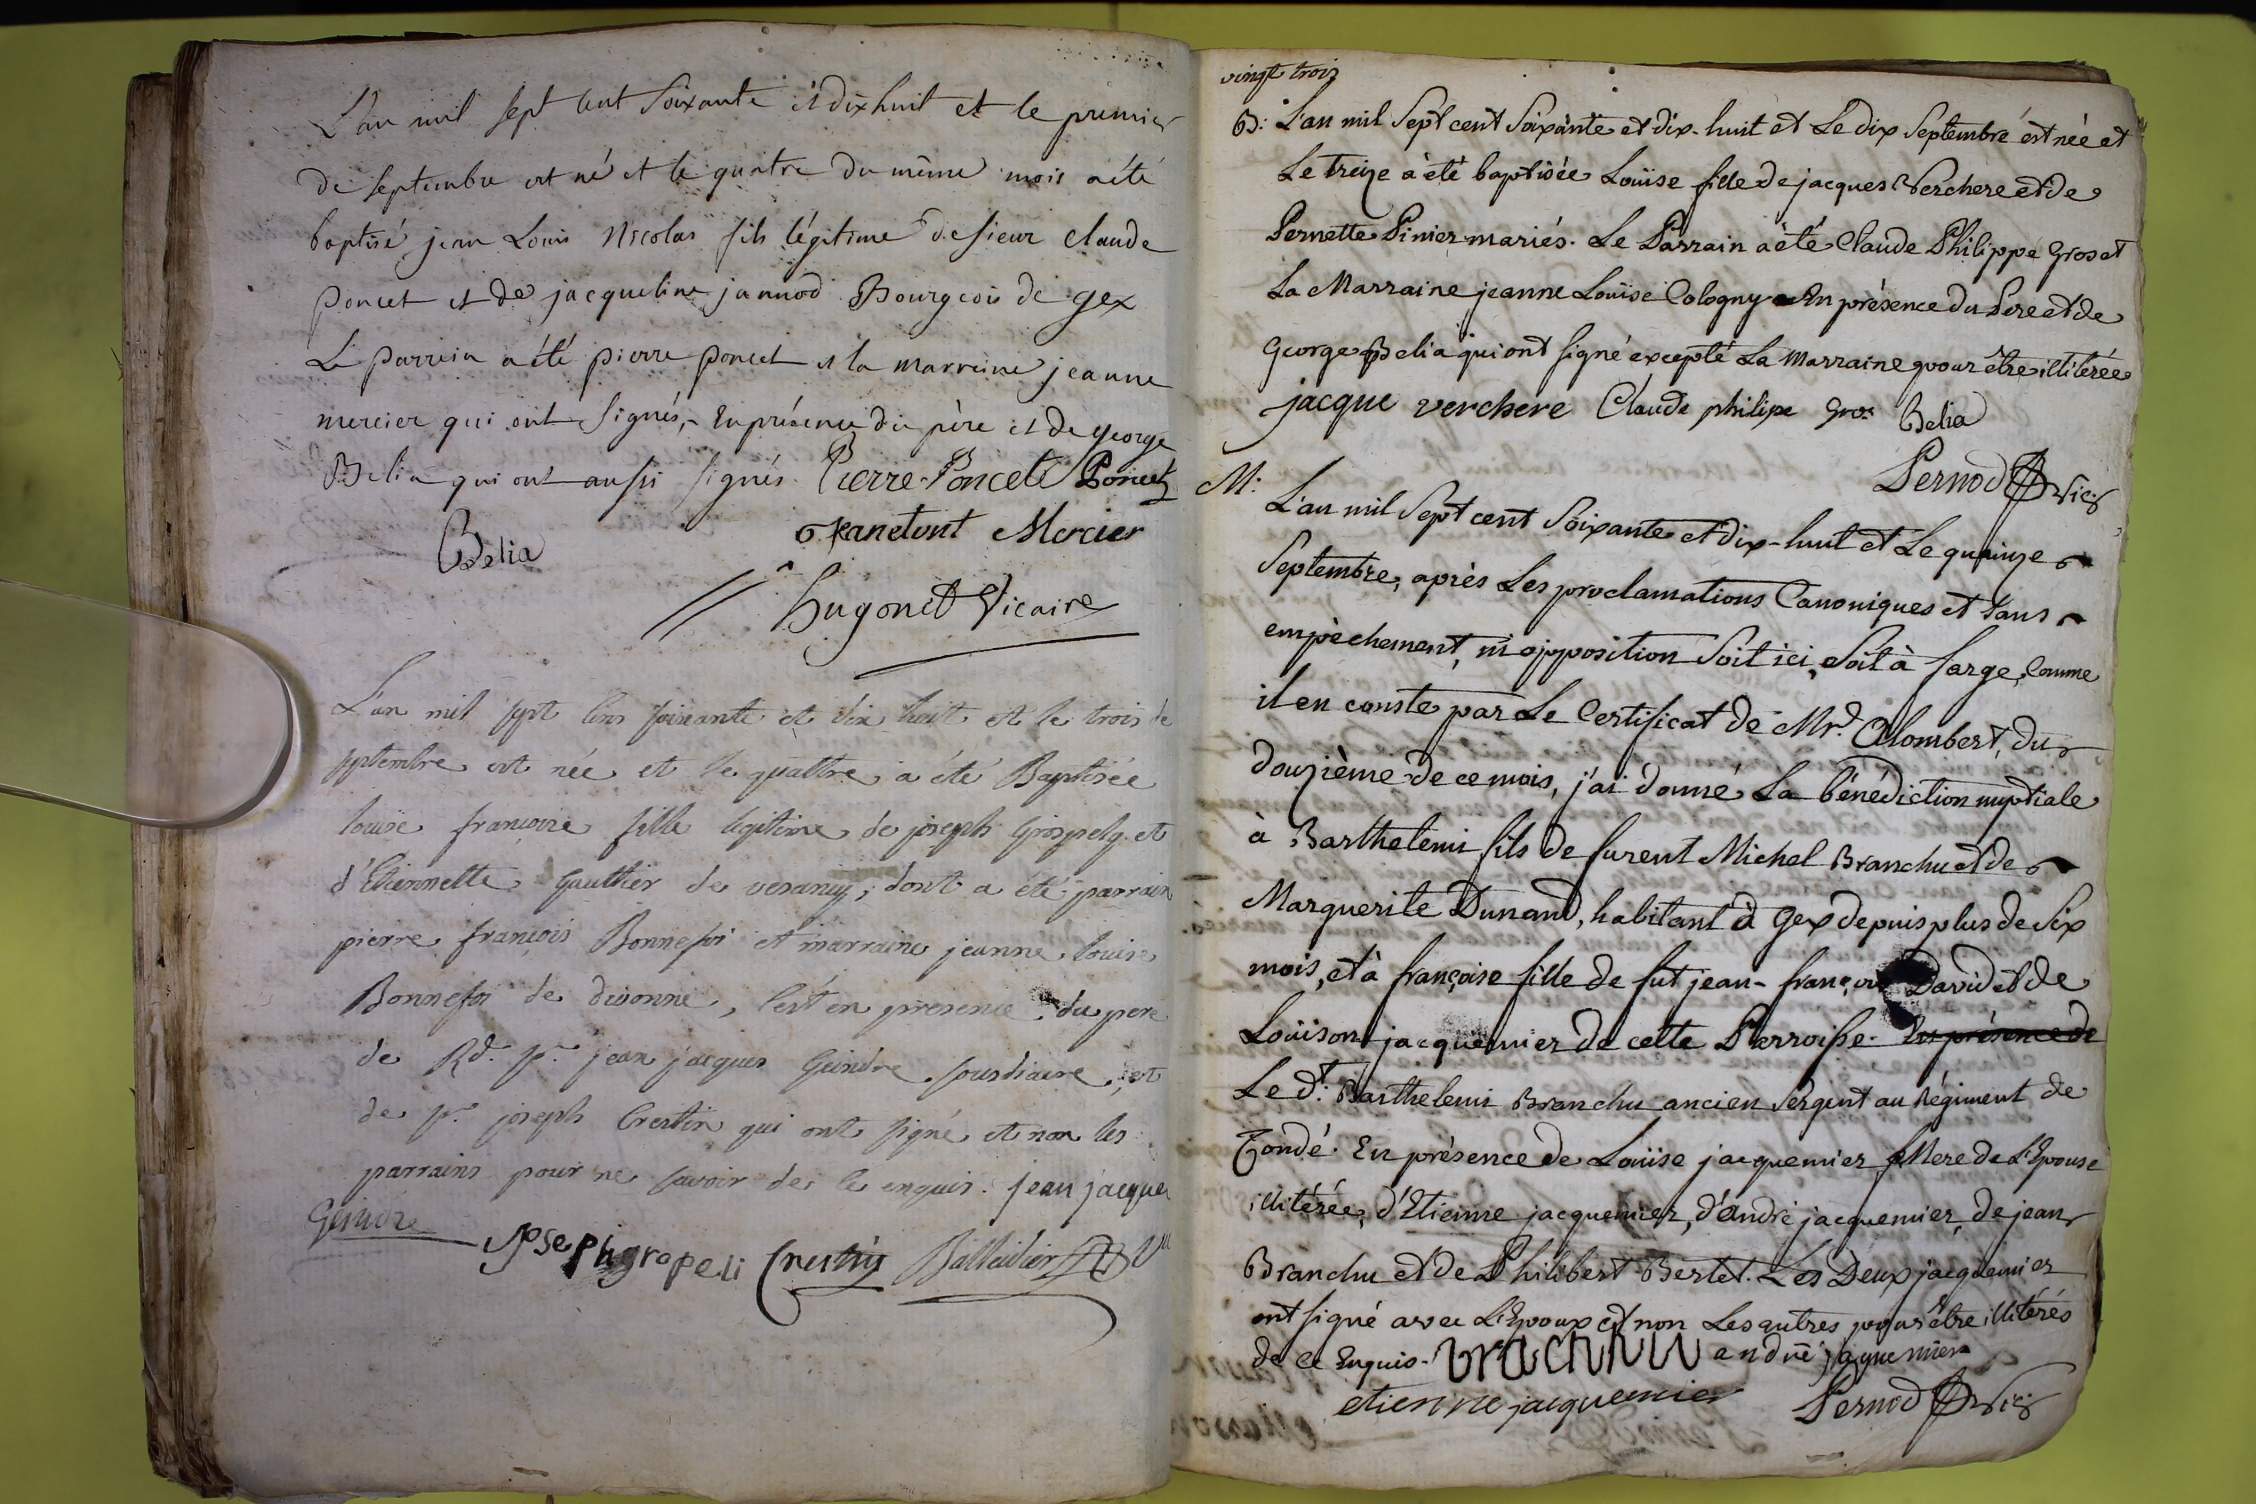 L'an mil sept cent soixante et dixhuit et le premier
de septembre est né et le quatre du même mois a été
baptisé jean Louis Nicolas fils légitime de sieur claude
poncet et de jacqueline jannod Bourgeois de gex
Le parrein a été pierre poncet et la marreine jeanne
mercier qui ont signés, En présence du père et de george
Belia qui ont aussi signés. Pierre Poncet Poncet
Belia Janetont Mercier
hugonet Vicaire
L'an mil sept cens soixante et dix huit et le trois de
septembre est née et le quattre a été Baptisée
louise françoise fille legitime de joseph et
d'Etiennette Gauthier de vesancy, dont a été parrain
pierre françois Bonnefoi et marraine jeanne louise
Bonnefoi de divonne, c'est en presence du pere
de Rd. Sr. jean jacques Geindre sousdiacre, et
de Sr. joseph Crestin qui ont signé et non les
parrains pour ne savoir de ce enquis. jean jacques
Geindre Joseph gropeli Crestin Balleidier
vingt trois
B: L'an mil Sept cent Soixante et dix-huit et Le dix Septembre est née et
Le treize à été baptisée Louise fille de jacques Verchere et de
Pernette Pinier mariés. Le Parrain a été Claude Philippe Gros et
La Marraine jeanne Louise Cologny En présence du Pere et de
George Belia qui ont signé excepté La Marraine pour être illitérée
jacque verchere Claude philipe gros Belia
Pernod Vic:
M:
L'an mil Sept cent Soixante et dix-huit et Le quinze
Septembre, après Les proclamations Canoniques et sans
empêchement, ni opposition Soit ici, Soit à farge, Comme
il en conste par Le Certificat de Mr. Colombert, du
douzième de ce mois, j'ai donné La bénédiction nuptiale
à Barthelemi fils de furent Michel Branchu et de
Marguerite Dunand, habitant à Gex depuis plus de Six
mois, et à françoise fille de fut jean-françois David et de
Loüison jacquemier de cette Parroisse. En présence de
Le dt. Barthelemi Branchu ancien Sergent au Régiment de
Condé. En présence de Loüise jacquemier Mere de L'Epouse
illitérée, d'Etienne jacquemier, d'andré jacquemier, de jean
Branchu et de Philibert Bertet. Les Deux jacquemier
ont signé avec L'Epoux et non Les autres pour être illitérés
de ce Enquis. brachhu andré jaquemier
etienne jacquemier Pernod Vic: